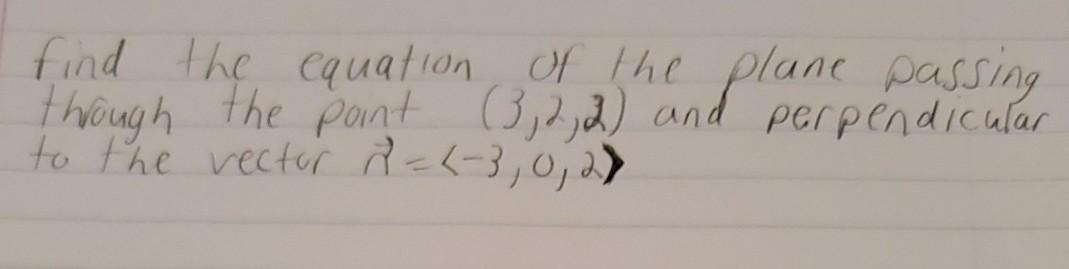 find the equation of the plane passing
through the point (3,2,2) and perpendicular
to the vector n⃗ = <-3, 0, 2>